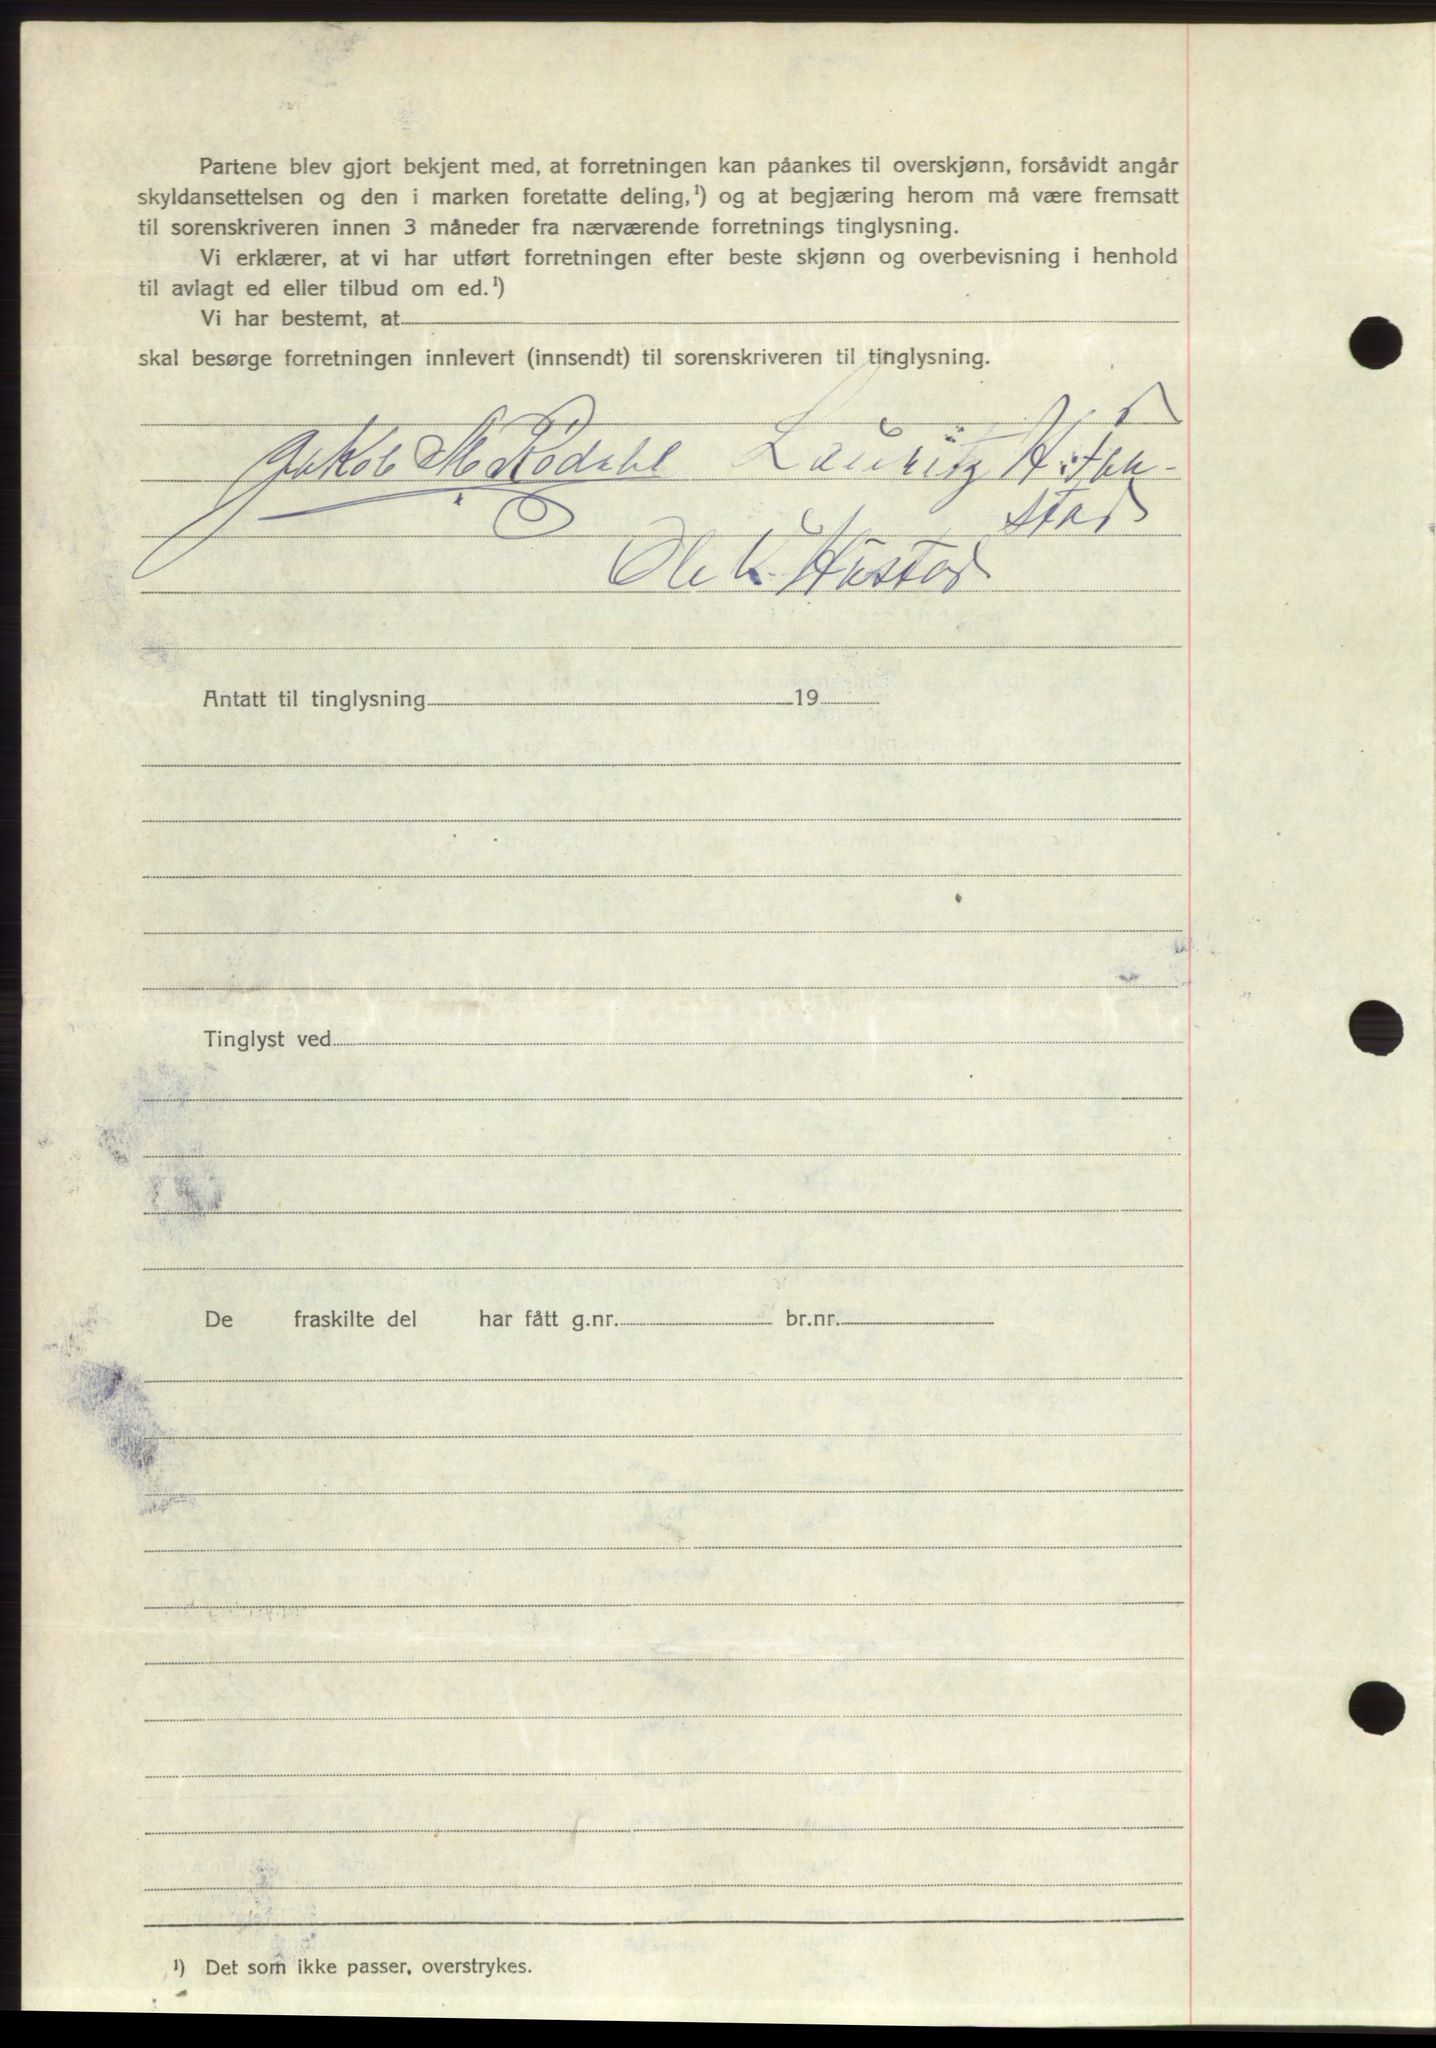 Partene blev gjort bekjent med, at forretningen kan påankes til overskjønn, forsåvidt angår
skyldansettelsen og den i marken foretatte deling,¹) og at begjæring herom må være fremsatt
til sorenskriveren innen 3 måneder fra nærværende forretnings tinglysning.
Vi erklærer, at vi har utført forretningen efter beste skjønn og overbevisning i henhold
til avlagt ed eller tilbud om ed.¹)
Vi har bestemt, at
skal besørge forretningen innlevert (innsendt) til sorenskriveren til tinglysning.
Jakob M. Rödahl Lauritz
stad
Ole K. Hustad
Antatt til tinglysning 19
Tinglyst ved
De fraskilte del har fått g.nr. br.nr.
¹) Det som ikke passer, overstrykes.